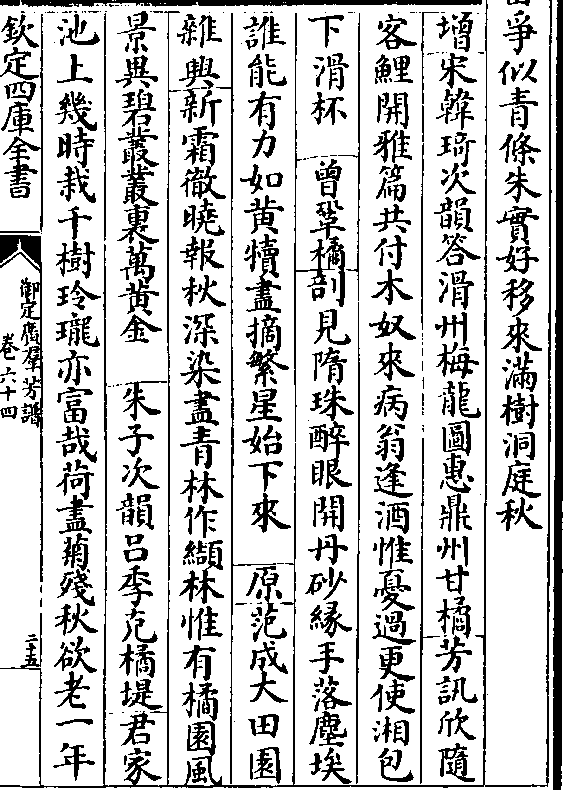 爭似青條朱實好移來滿樹洞庭秋
增宋韓琦次韻答滑州梅龍圖惠鼎州甘橘芳訊欣隨
客鯉開雅篇共付木奴來病翁逢酒惟憂過更使湘包
下滑杯　曾鞏橘剖見隋珠醉眼開丹砂緣手落塵埃
誰能有力如黃犢盡摘繁星始下來　原范成大田園
雜興新霜徹曉報秋深染盡青林作纈林惟有橘園風
景異碧叢叢裏萬黃金　朱子次韻呂季克橘堤君家
池上幾時栽千樹玲瓏亦富哉荷盡菊殘秋欲老一年
欽定四庫全書
御定廣羣芳譜
卷六十四
二十五